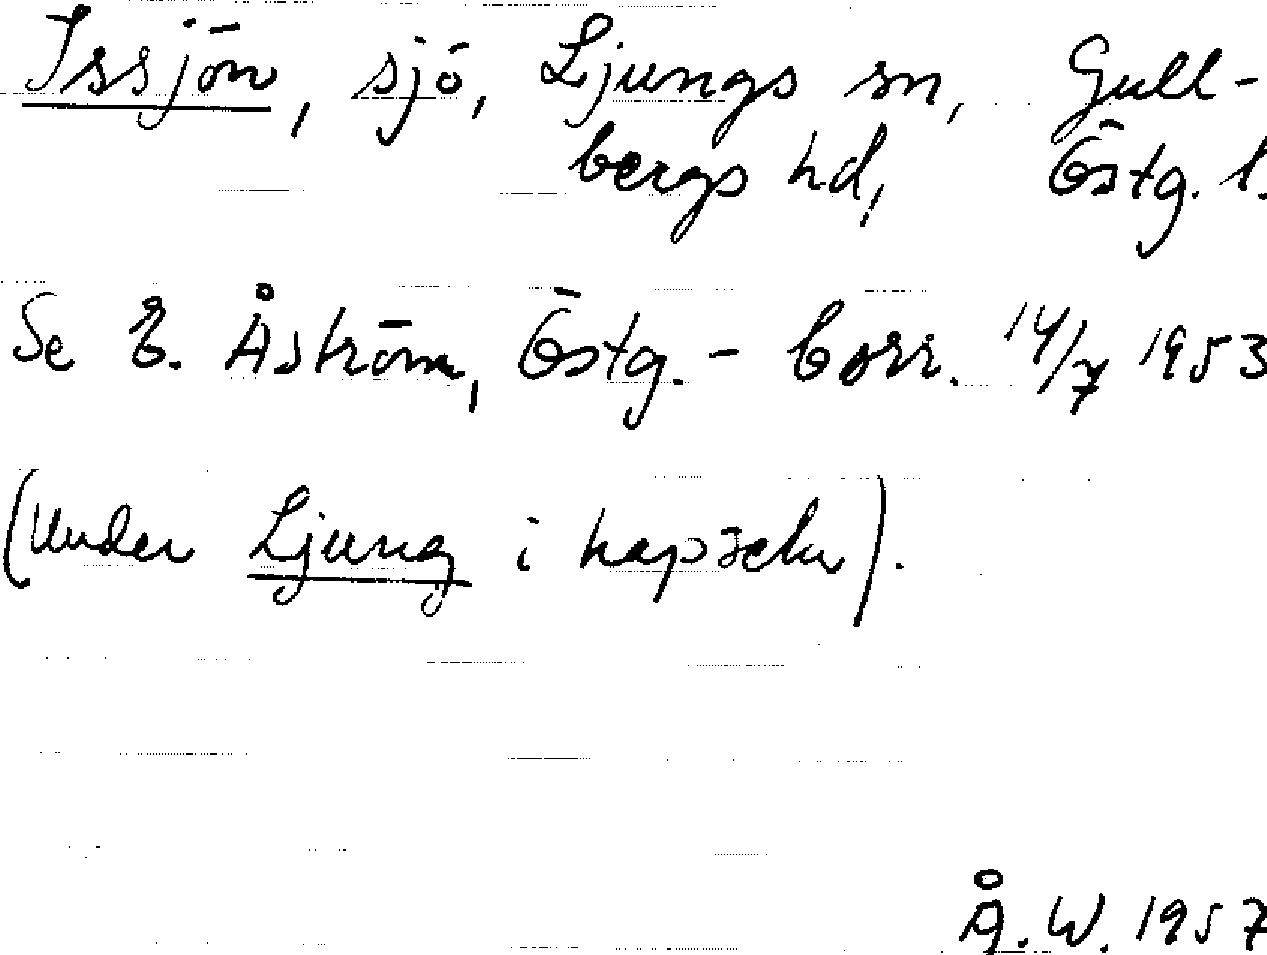 Issjön, sjö, Ljungs sn, Gull-
bergs hd, Östg. l.
Se E. Åström, Östg.-Corr. 14/7 1953
(Under Ljung i kapseln).
Å.W. 1957